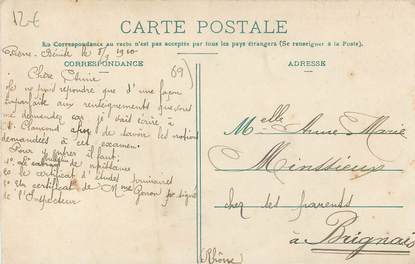 12€
CARTE POSTALE
La Correspondance au recto n'est pas acceptée par tous les pays étrangers (Se renseigner à la Poste).
CORRESPONDANCE
ADRESSE
Pierre-Bénite le 8/9 1910
69)
Chère Amie
Je ne puis répondre que d'une façon
imparfaite aux renseignements que vous
me demandez car je dois écrire à
St Chamond de savoir les notions
demandées à cet examen.
Pour y entrer il faut:
1°
2° le certificat d'études primaires
3° Un certificat de Mme signé
de l'Inspecteur
Melle Anne-Marie
Minssieux
chez ses parents
à Brignais
(Rhône)